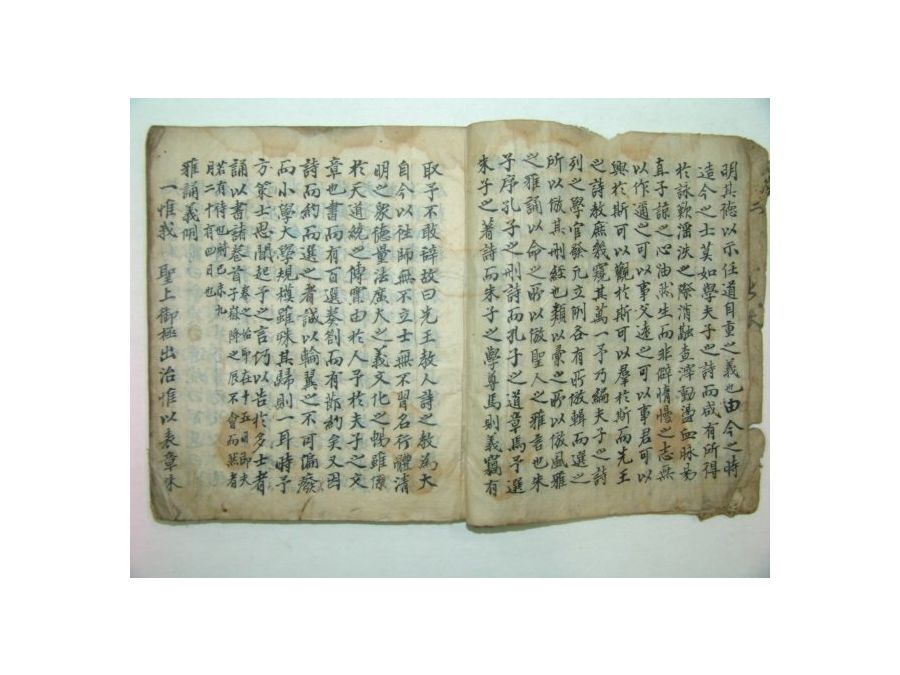 明其德以示任道自重之義也由今之時
造今之士莫如學夫子之詩而咸有所得
於詠歎滛泆之際消融查滓動盪血脉易
直子諒之心油然生而非僻惰慢之志無
以作邇之可以事父逺之可以事君可以
興於斯可以觀於斯可以羣於斯而先王
之詩教庶幾窺其萬一予乃編夫子之詩
列之學官發凡立例各有所倣輯而選之
所以倣其刪經也類以彙之所以倣風雅
之雅誦以命之所以倣聖人之雅言也朱
子序孔子之刪詩而孔子之道章焉予選
朱子之著詩而朱子之學尊焉則義竊有
取予不敢辞故曰先王教人詩之教為大
自今以徃師無不立士無不習名行體清
明之衆德量法廣大之義文化之暢雖係
於天道統之傳寔由於人予於夫子之文
章也書而有百選奏劄而有節約矣又因
詩而約而選之者誠以輪翼之不可漏癈
而小學大學規模雖殊其歸則一耳時予
方策士思聞起予之言仍以告於多士者
誦以書諸卷首
雅誦義例
一惟我 聖上御極出治惟以表章朱